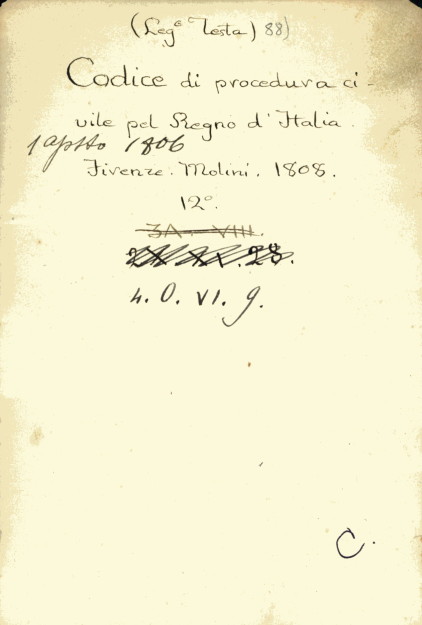 (Leg.e Testa) 88)
Codice di procedura ci-
vile pel Regno d'Italia.
1 agosto 1806
Firenze. Molini. 1808.
12°.
3A. VIII.
XX. 28.
4. O. VI. 9.
C.